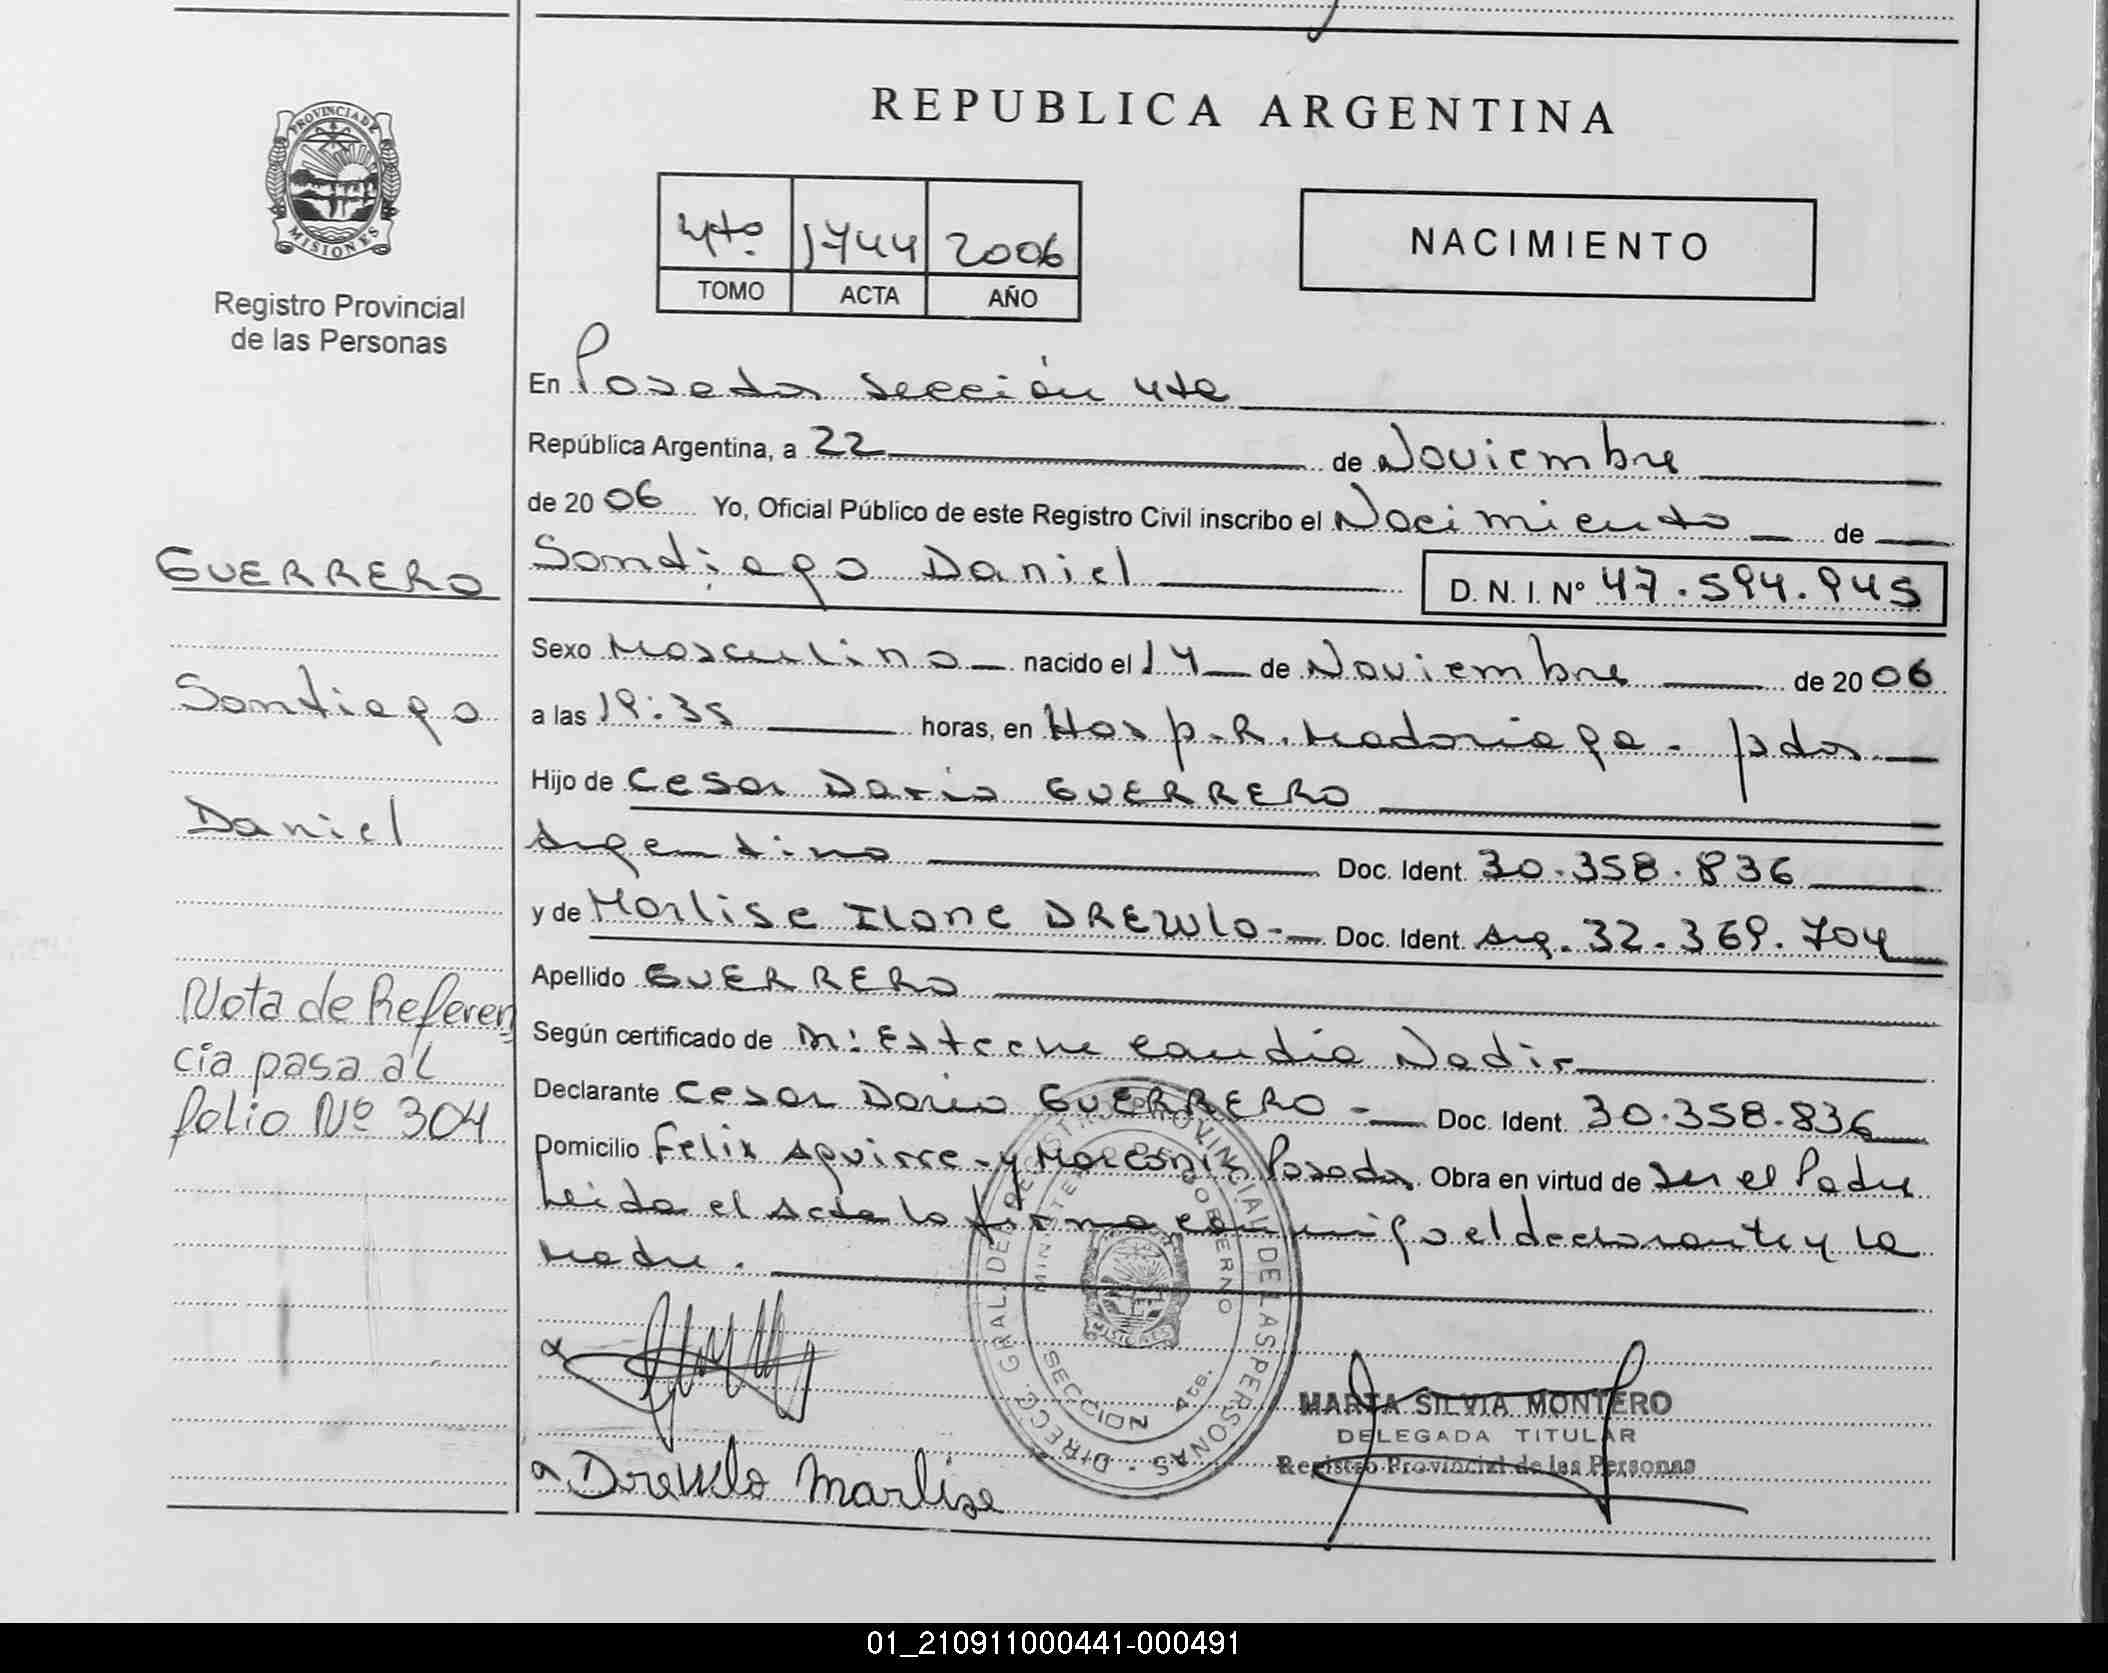 REPUBLICA ARGENTINA
PROVINCIA DE
MISIONES
Registro Provincial
de las Personas
4to. 1744 2006
TOMO ACTA AÑO
NACIMIENTO
En Posadas Sección 4ta
República Argentina, a 22 de Noviembre
de 20 06 Yo, Oficial Público de este Registro Civil inscribo el Nacimiento de
Santiago Daniel D. N. I. Nº 47.594.945
Sexo Masculino nacido el 14 de Noviembre de 20 06
a las 19:35 horas, en Hosp. R. Madariaga - Pdas.
Hijo de Cesar Dario GUERRERO
Argentino Doc. Ident. 30.358.836
y de Marlise Ilone DREWLO.- Doc. Ident. Arg. 32.369.704
Apellido GUERRERO
Según certificado de M: Esteche Claudia Nadir
Declarante Cesar Dario GUERRERO - Doc. Ident. 30.358.836
Domicilio Felix Aguirre y Posadas. Obra en virtud de ser el Padre
Leida el Acta la firma conmigo el declarante y la
Madre.
GUERRERO
Santiago
Daniel
Nota de Referen
cia pasa al
folio Nº 304
DIRECC. GRAL. DEL REGISTRO PROVINCIAL DE LAS PERSONAS
MINISTERIO DE GOBIERNO
MISIONES
SECCION 4ta.
Drewlo Marlise
MARTA SILVIA MONTERO
DELEGADA TITULAR
Registro Provincial de las Personas
01_210911000441-000491